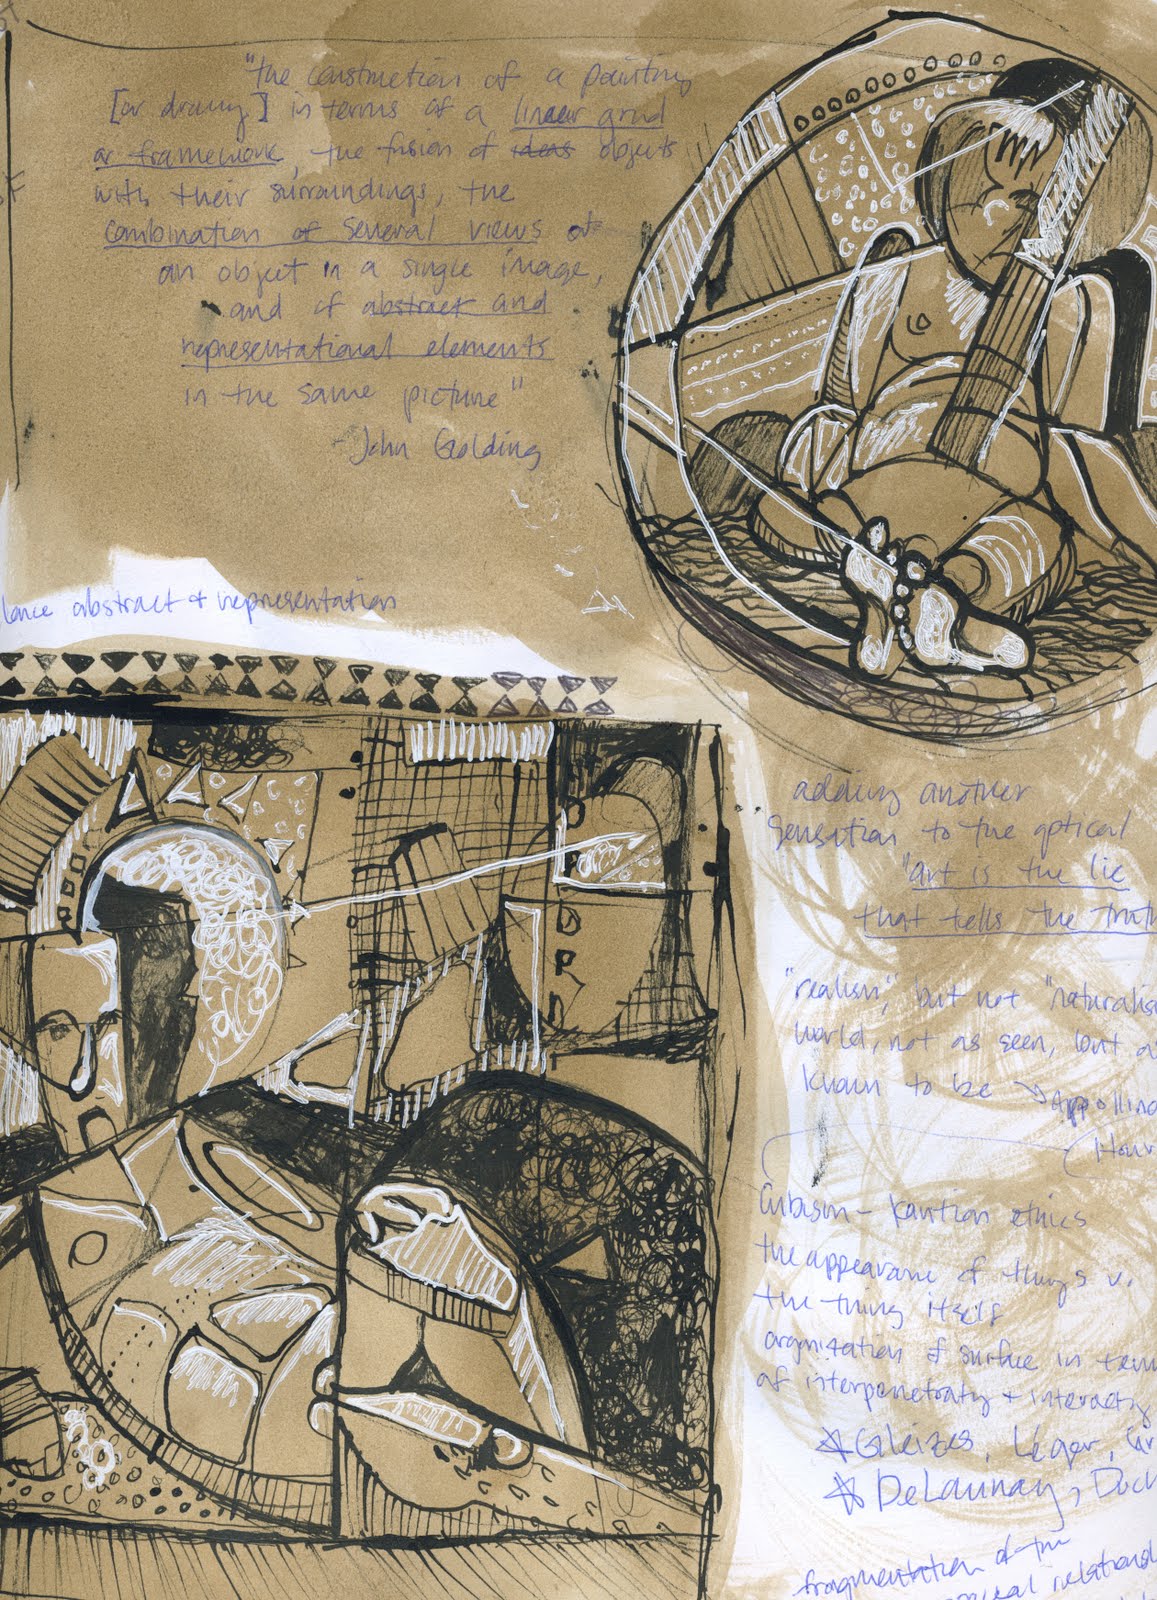 "the construction of a painting
[or drawing] in terms of a linear grid
or framework, the fusion of ideas objects
with their surroundings, the
combination of several views of
an object in a single image,
and of abstract and
representational elements
in the same picture"
- John Golding
lance abstract & representation
adding another
sensation to the optical
"art is the lie
that tells the truth
"realism", but not "naturalis
world, not as seen, but a
known to be → Appollina
Cubism - Kantian ethics
the appearance of things v.
the thing itself
organization of surface in term
of interpenetraty & interacty
☆Gleizes, Léger, Gr
☆ DeLaunay, Duch
fragmentation of the
relationsh